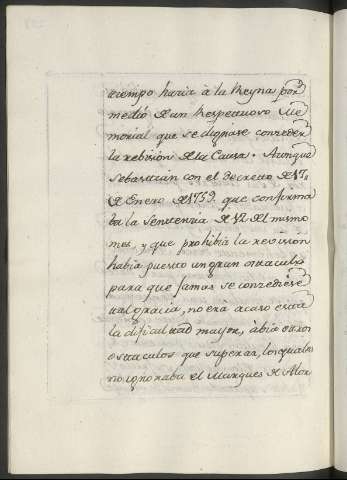 tiempo haria à la Reyna por
medio de un Respectuoso Me
morial que se dignase conzeder
la rebision de la Causa. Aunque
Sebastian con el Decreto de 17,,
de Enero de 1759. que confirma
ba la Sentencia de 12 del mismo
mes, y que prohibia la revision
habia puesto un gran ostaculo
para que jamas se conzediese
tal gracia, no erà acaso esta
la dificultad mayor, àbia otros
ostaculos que superar, los quales
no ignoraba el Marques de Alor